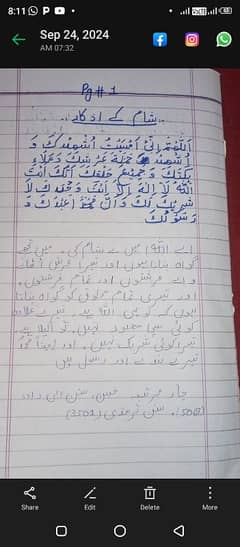 8:11
Sep 24, 2024
AM 07:32
Pg # 1
شام کے اذکار
اَللّٰهُمَّ اِنِّیْ اَمْسَیْتُ اُشْهِدُكَ وَ
اُشْهِدُ حَمَلَةَ عَرْشِكَ وَمَلَاءِ
ئِكَتَكَ وَجَمِیْعَ خَلْقِكَ اَنَّكَ اَنْتَ
اللّٰهُ لَا اِلٰهَ اِلَّا اَنْتَ وَحْدَكَ لَا
شَرِیْكَ لَكَ وَاَنَّ مُحَمَّدًا عَبْدُكَ وَ
رَسُوْلُكَ
اے اللہ! میں نے شام کی۔ میں تجھے
گواہ بناتا ہوں اور تیرا عرش اٹھانے
والے فرشتوں اور تمام فرشتوں،
اور تیری تمام مخلوق کو گواہ بناتا
ہوں کہ تو ہی اللہ ہے۔ تیرے علاوہ
کوئی سچا معبود نہیں، تو اکیلا ہے۔
تیرا کوئی شریک نہیں۔ اور یقیناً محمد
تیرے بندے اور رسول ہیں
چار مرتبہ سنن ابی داؤد
سنن ترمذی (3501)
Share
Edit
Delete
More